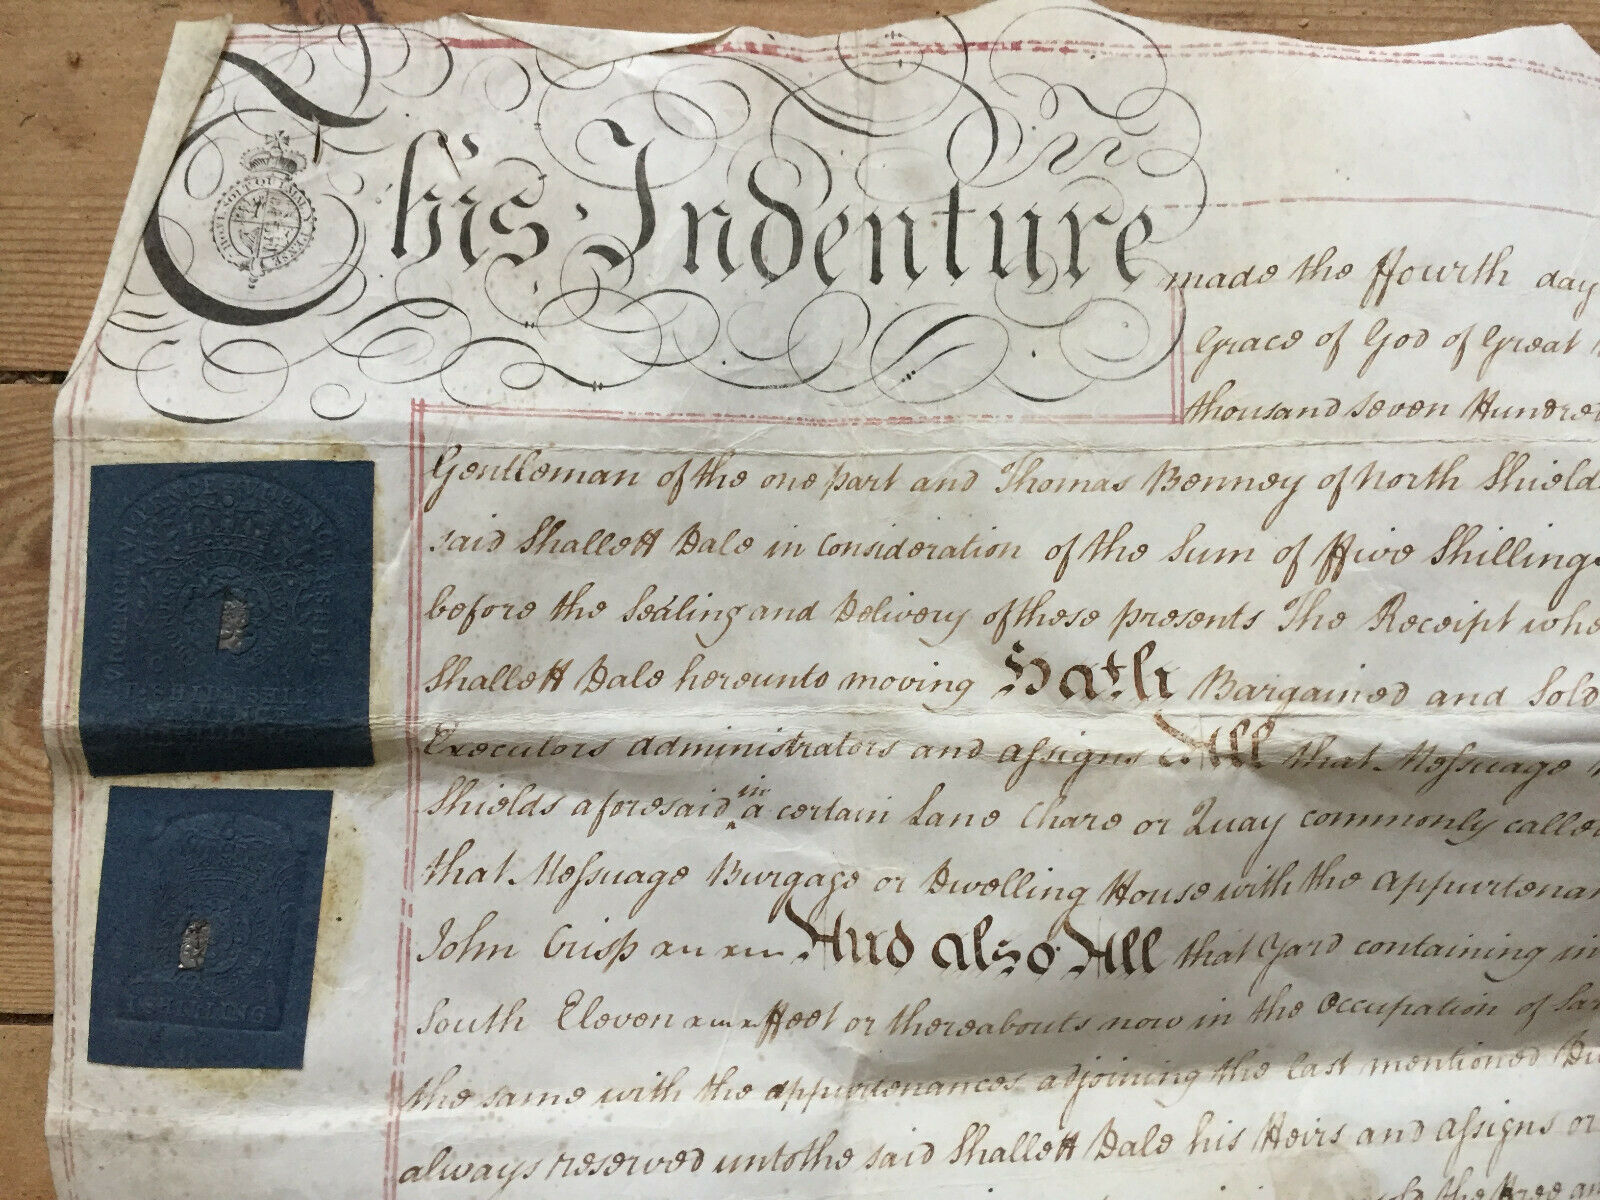 This Indenture made the Fourth day
Grace of God of Great
thousand seven Hundred
Gentleman of the one part and Thomas Benney of North Shields
said Shallett Dale in Consideration of the Sum of Five Shillings
before the Sealing and Delivery of these presents The Receipt whe
Shallett Dale hereunto moving Hath Bargained and Sold
Executors administrators and assigns All that Messuage
Shields aforesaid in a certain Lane Chare or Quay commonly called
that Messuage Burgage or Dwelling House with the appurtenan
John Crisp And also All that Yard containing in
South Eleven Feet or thereabouts now in the Occupation of Sar
the same with the appurtenances adjoining the last mentioned Dw
always reserved unto the said Shallett Dale his Heirs and assigns or
the Free an
HONI SOIT QUI MAL Y PENSE
SHILLING